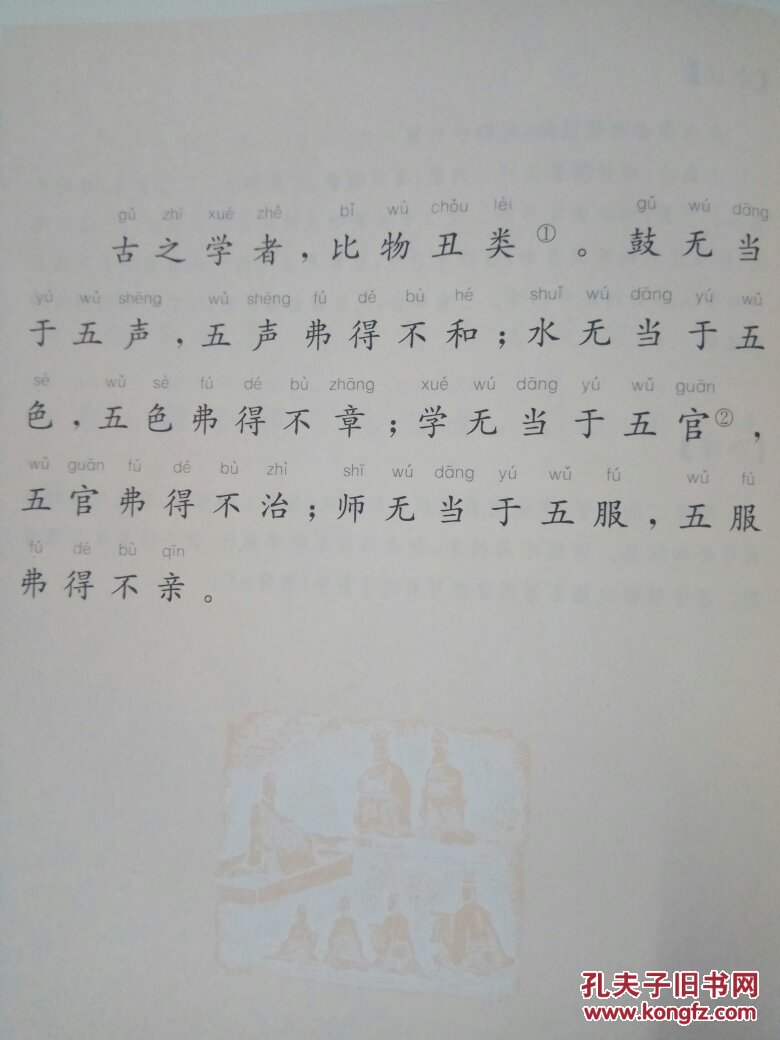 gǔ zhī xué zhě bǐ wù chǒu lèi gǔ wú dāng
古之学者，比物丑类①。鼓无当
yú wǔ shēng wǔ shēng fú dé bù hé shuǐ wú dāng yú wǔ
于五声，五声弗得不和；水无当于五
sè wǔ sè fú dé bù zhāng xué wú dāng yú wǔ guān
色，五色弗得不章；学无当于五官②，
wǔ guān fú dé bù zhì shī wú dāng yú wǔ fú wǔ fú
五官弗得不治；师无当于五服，五服
fú dé bù qīn
弗得不亲。
孔夫子旧书网
www.kongfz.com